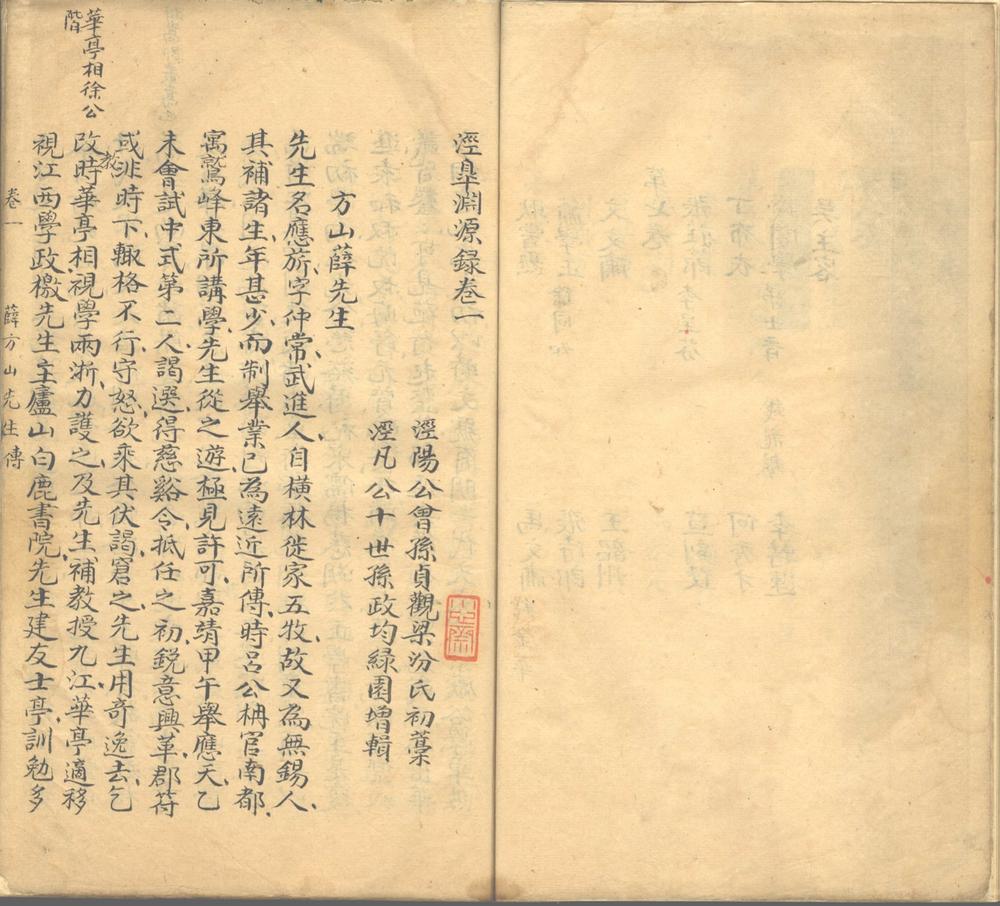 涇皐淵源録卷一
涇陽公曾孫貞觀梁汾氏初藁
方山薛先生
涇凡公十世孫政均緑園增輯
先生名應旂字仲常武進人自横林徙家五牧故又為無錫人
其補諸生年甚少而制舉業已為遠近所傳時吕公柟官南都
寓鷲峰東所講學先生從之遊極見許可嘉靖甲午舉應天乙
未會試中式第二人謁選得慈谿令抵任之初鋭意興革郡符
或非時下輙格不行守怒欲乘其伏謁窘之先生用奇逸去乞
改教時華亭相視學兩浙力護之及先生補教授九江華亭適移
視江西學政檄先生主廬山白鹿書院先生建友士亭訓勉多
華亭相徐公
階
卷一
薛方山先生傳